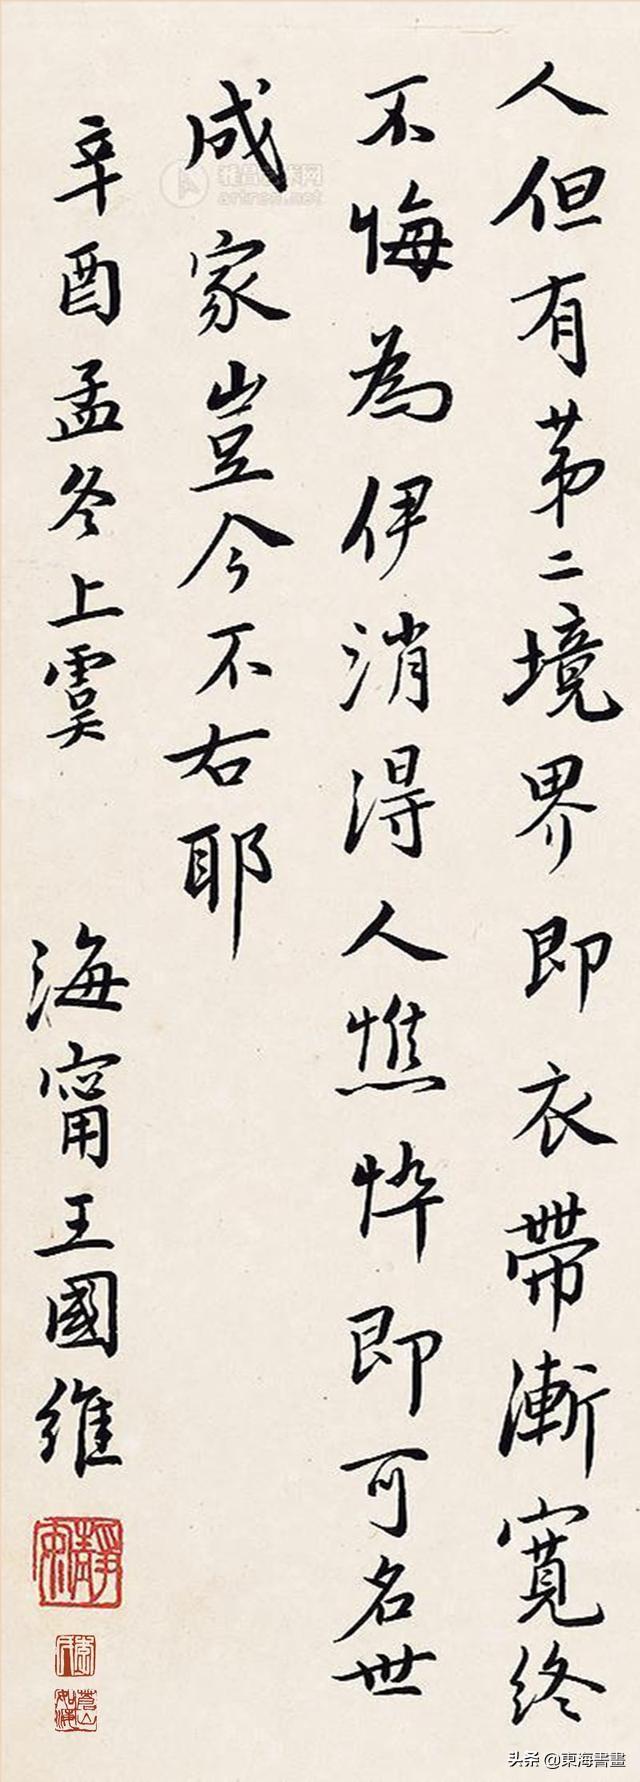 人但有苐二境界即衣帶漸寬終
不悔為伊消得人憔悴即可名世
成家豈今不右耶
辛酉孟冬上虞
海甯王國維
雅昌艺术网
artron.net
头条 @東海書畫